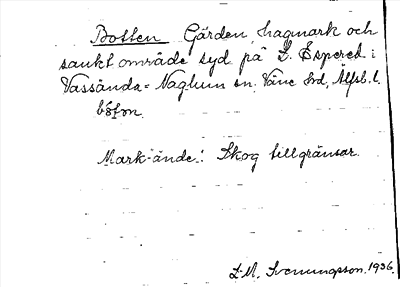 Botten Gärden, hagmark och
sankt område syd på L. Espered i
Vassända-Naglum sn. Väne hd, Älfsb. l.
Mark-ände: Skog tillgränsar.
L. M. Svenungsson. 1936.